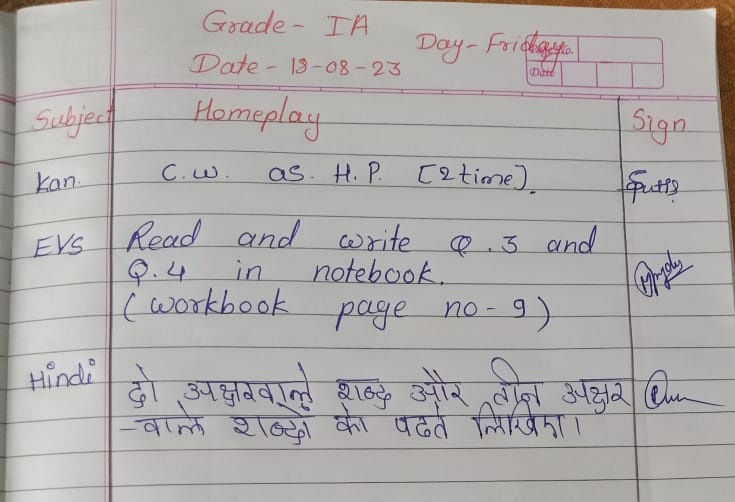 Grade - IA
Day - Friday
Date - 18-08-23
Date
Subject Homeplay Sign
Kan. C.W. as. H.P. [2 time].
EVS Read and write Q.3 and
Q.4 in notebook.
(workbook page no - 9)
Hindi दो अक्षरवाले शब्द और तीन अक्षर
-वाले शब्दों को पढते लिखिए।